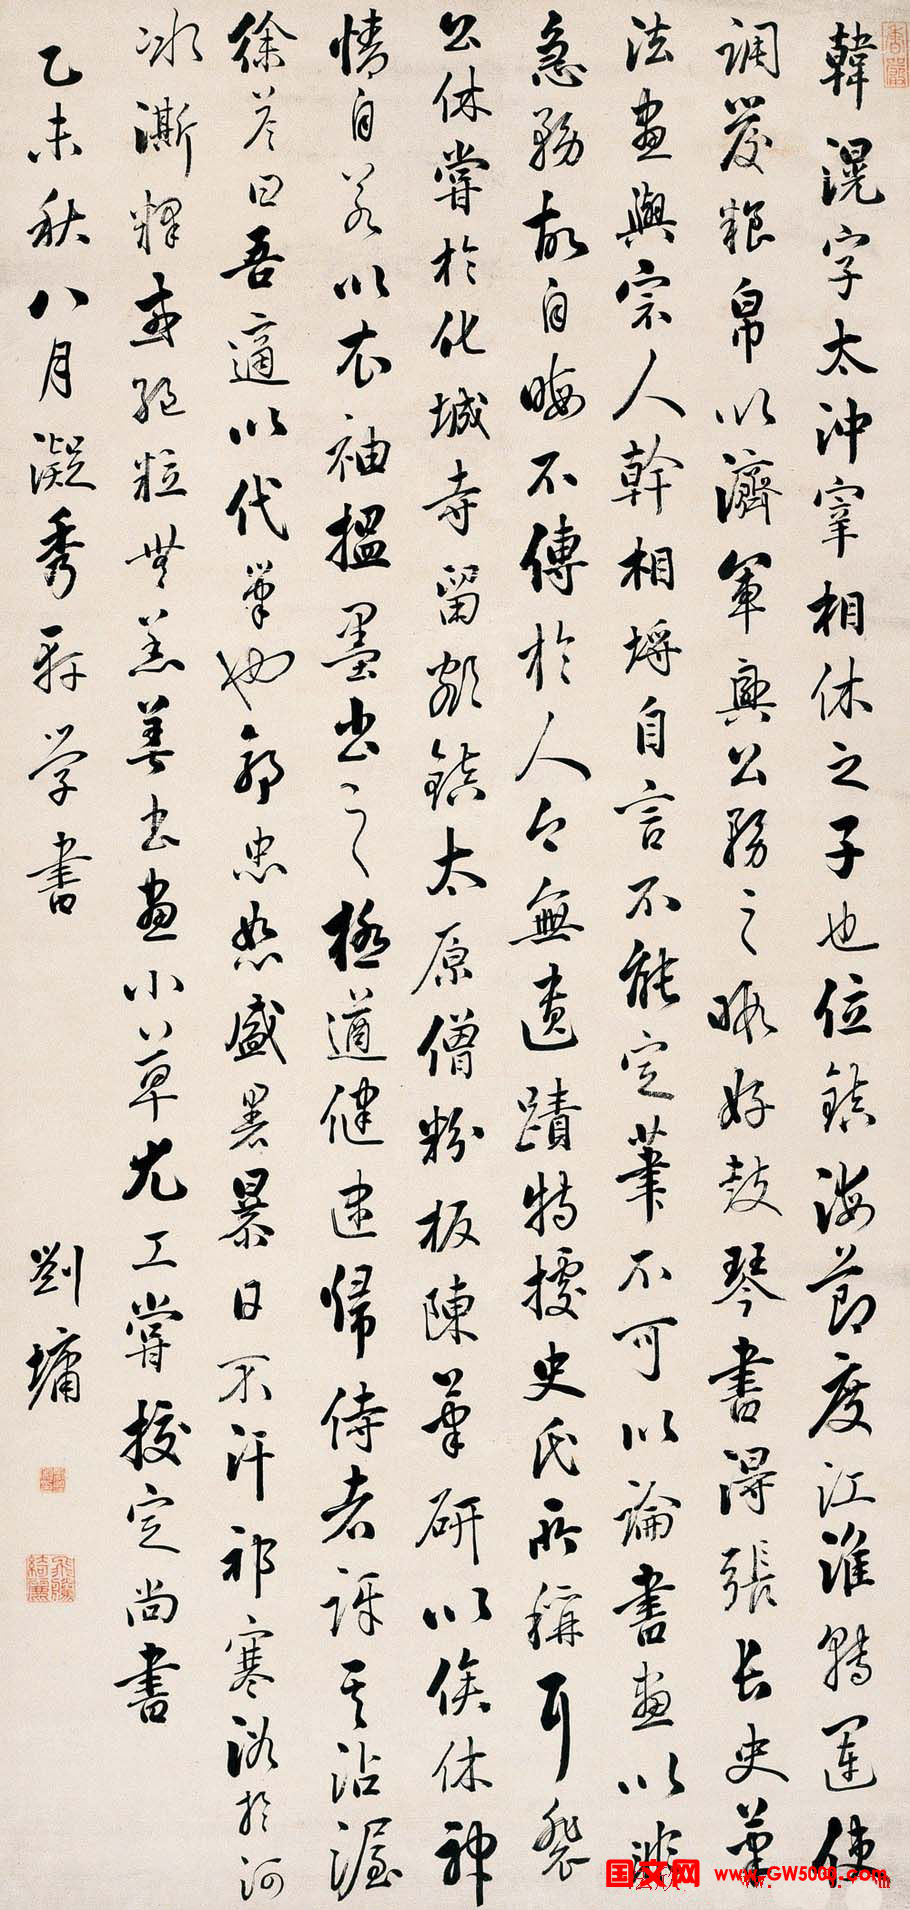 韓滉字太沖宰相休之子也位鎮海節度江淮轉運使
調發粮帛以濟軍興公務之暇好鼓琴書得張長史筆
法畫與宗人幹相埒自言不能定筆不可以論書畫以非
急務故自晦不傳於人今無遺蹟特據史氏所稱耳裴
公休嘗於化城寺留題鎮太原僧粉板陳筆研以俟休神
情自若以衣袖搵墨書之極遒健逮歸侍者訝其沾渥
徐答曰吾適以代筆也郭忠恕盛暑暴日不汗祁寒浴於河
冰澌釋或絕粒無恙善書畫小草尤工嘗挍定尚書
乙未秋八月凝秀軒學書
劉墉
國文网 www.GW5000.com